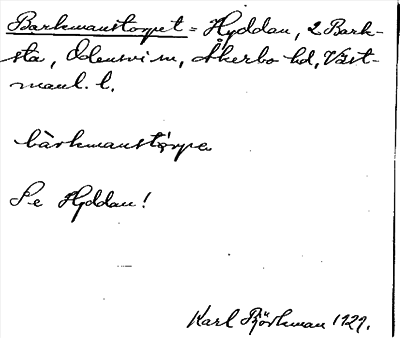 Barkmanstorpet = Hyddan, 2 Bark-
sta, Odensvi sn, Åkerbo hd, Väst-
manl. l.
bàrkmanstó̀rpe
Se Hyddan!
Karl Björkman 1929.